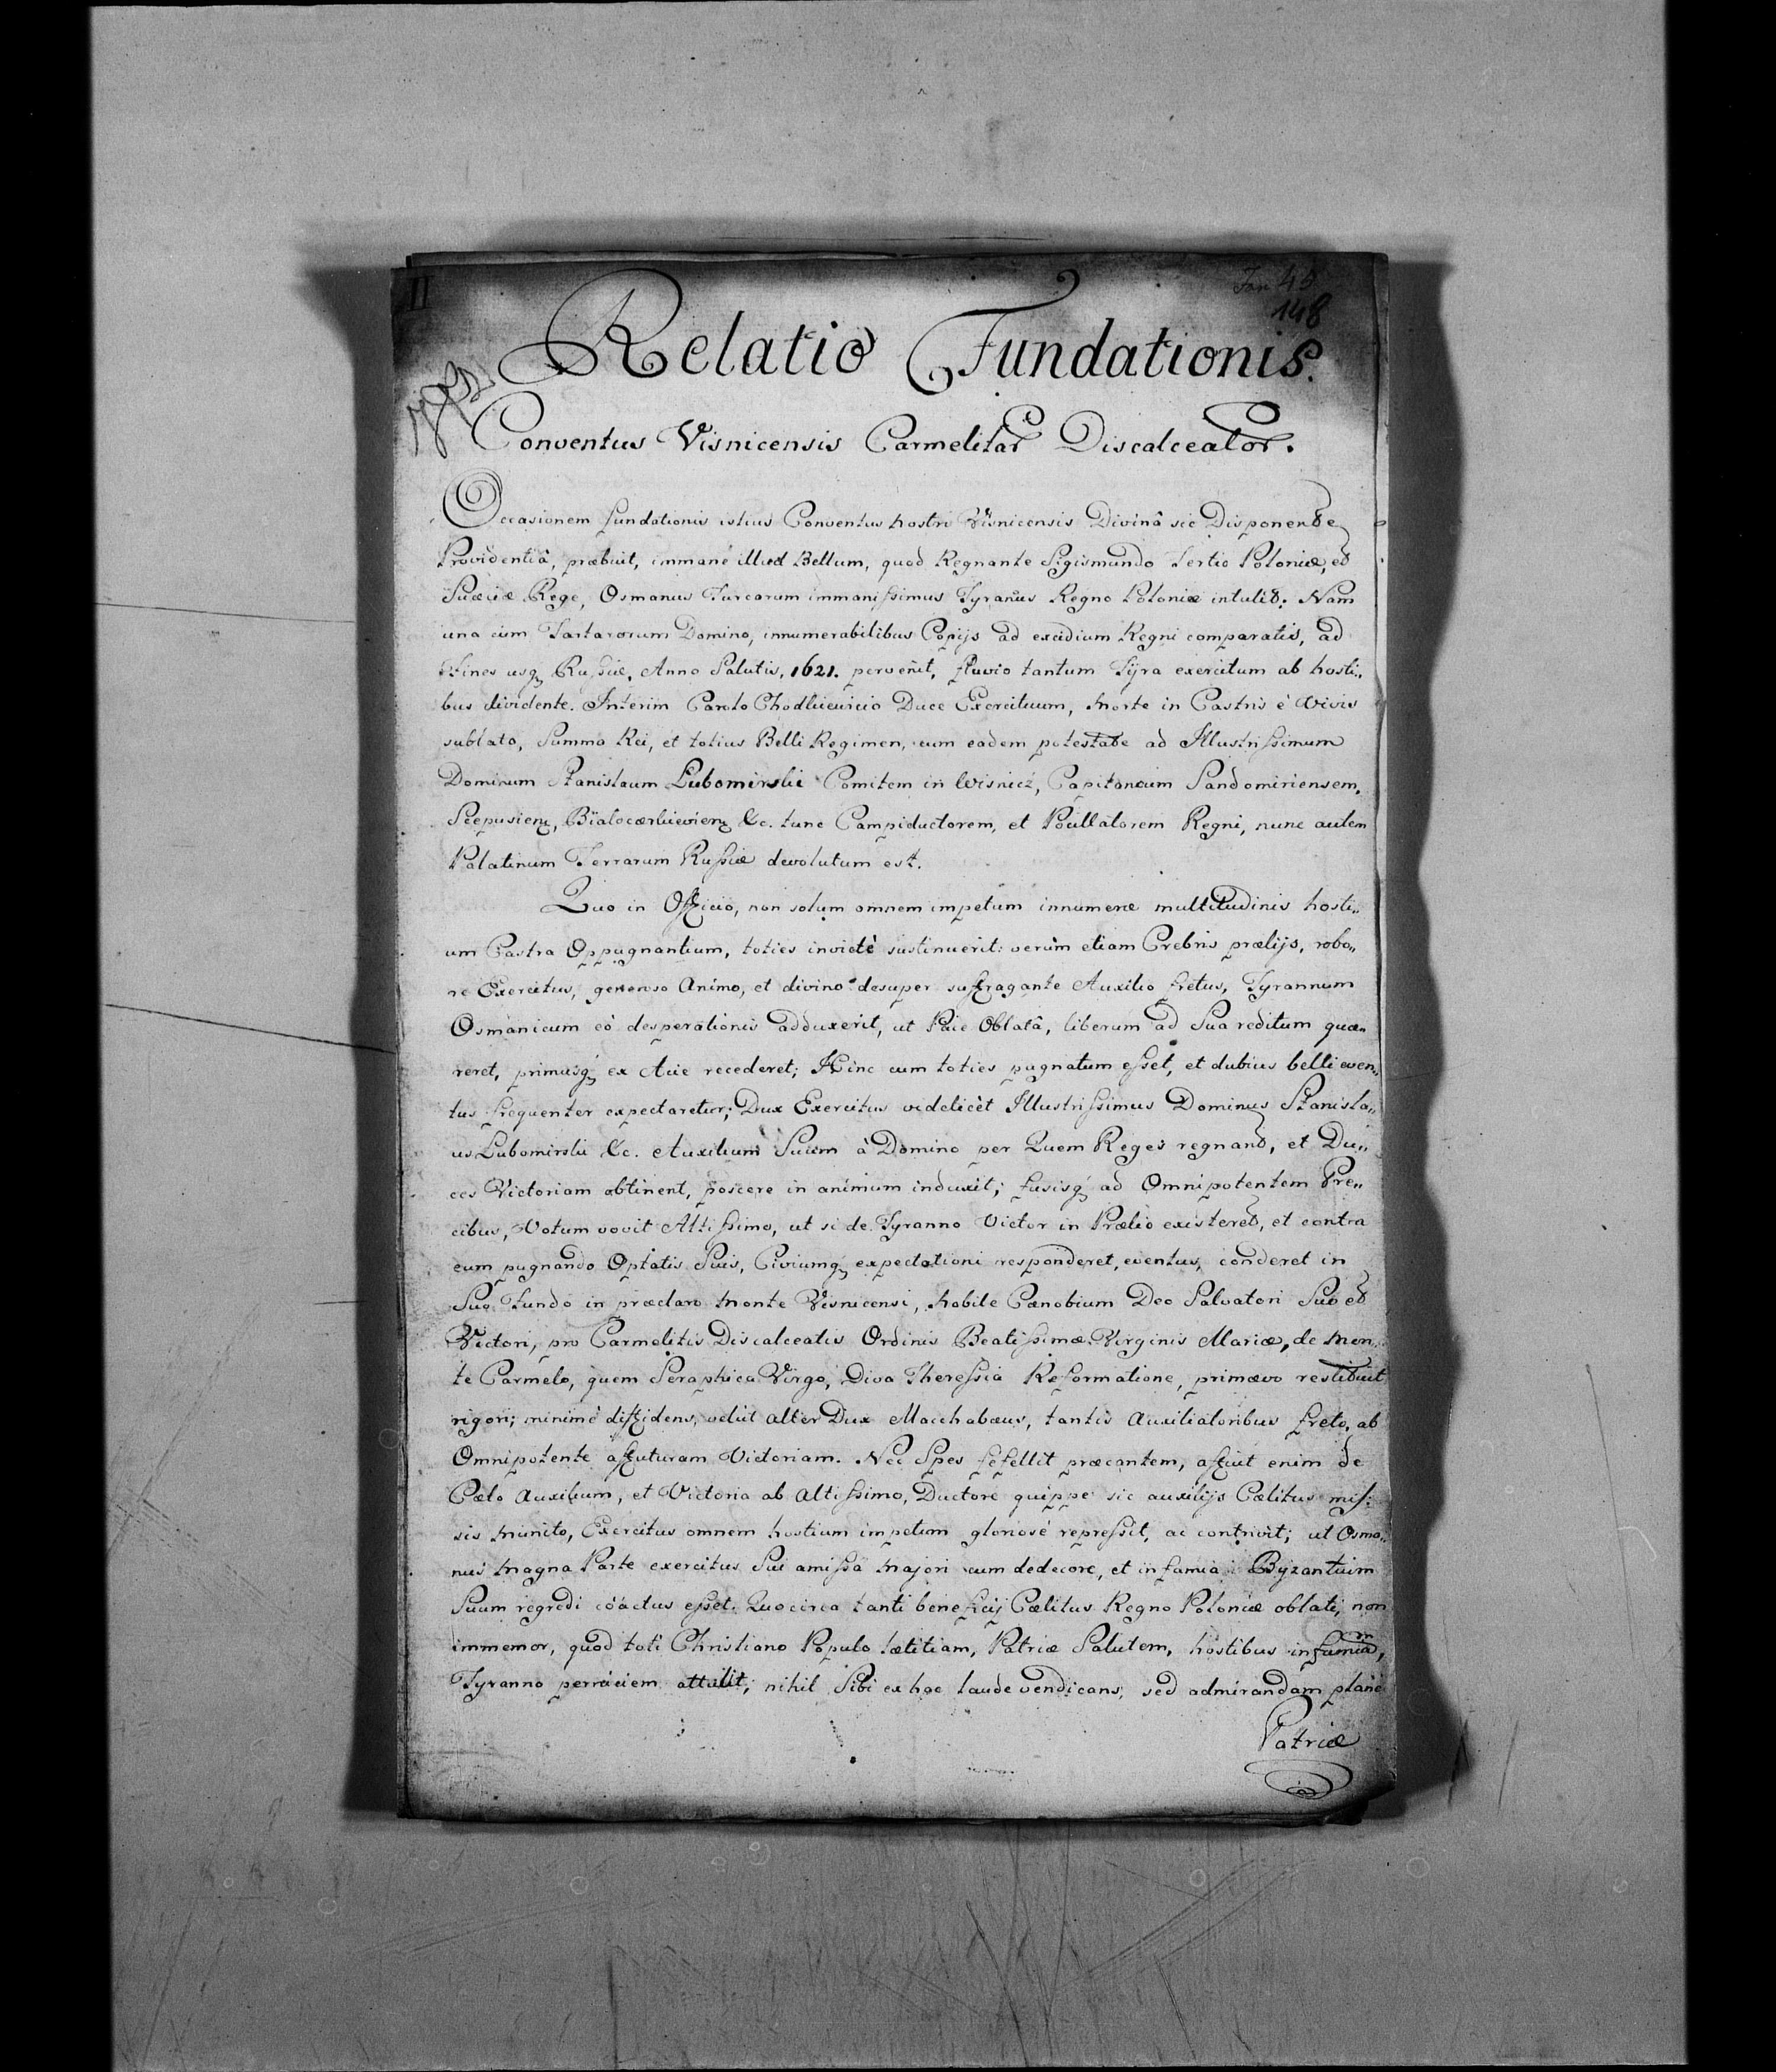 II
148
Relatio Fundationis.
Conventus Visnicensis Carmelitar Discalceator.
Occasionem fundationis istius Conventus Nostri Visnicensis Divinâ sic Disponende
Providentiâ, præbuit, immane illud Bellum, quod Regnante Sigismundo Tertio Poloniæ, et
Sueciæ Rege, Osmanus Turcarum immanissimus Tyrañus Regno Poloniæ intulit. Nam
una cum Tartarorum Domino, innumerabilibus Copijs ad excidium Regni comparatis, ad
Fines usq Russiæ, Anno Salutis, 1621. perveñit, fluvio tantum Tyra exercitum ab hosti„
bus dividente. Interim Carolo Chodkievicio Duce Exercituum, Morte in Castris è Vivis
sublato, Summa Rei, et totius Belli Regimen, cum eadem potestate ad Illustrissimum
Dominum Stanislaum Lubomirski Comitem in Wisnicz, Capitaneum Sandomiriensem,
Scepusien, Białocærkievien &c. tunc Campiductorem, et Pocillatorem Regni, nunc autem
Palatinum Terrarum Russiæ devolutum est.
Quo in Officio, non solum omnem impetum innumeræ multitudinis hosti„
um Castra Oppugnantium, toties invictè sustinuerit: verùm etiam Crebris prælijs, robo„
re Exercitus, generoso Animo, et divino desuper suffragante Auxilio fretus, Tyrannum
Osmanicum eò desperationis adduxerit, ut Pace Oblatâ, liberum ad Sua reditum quæ„
reret, primusq ex Acie recederet; Hinc cum toties pugnatum esset, et dubius belli even„
tus frequenter expectaretur; Dux Exercitus videlicèt Illustrissimus Dominus Stanisla„
us Lubomirski &c. Auxilium Suum à Domino per Quem Reges regnant, et Du„
ces Victoriam obtinent, poscere in animum induxit; fusisq ad Omnipotentem Pre„
cibus, Votum vovit Altissimo, ut si de Tyranno Victor in Prælio existeret, et contra
eum pugnando Optatis Suis, Civiumq expectationi responderet, eventus, conderet in
Suo Fundo in præclaro Monte Visnicensi, Nobile Cænobium Deo Salvatori Suo et
Victori, pro Carmelitis Discalceatis Ordinis Beatissimæ Virginis Mariæ, de Mon„
te Carmelo, quem Seraphica Virgo, Diva Theressia Reformatione, primævo restibuit
rigori; minimè diffidens, velùt alter Dux Macchabæus, tantis Auxiliatoribus freto, ab
Omnipotente affuturam Victoriam. Nec Spes fefellit præcantem, affuit enim de
Cælo Auxilium, et Victoria ab Altissimo, Ductore quippe sic auxilijs Cælitus mis:
sis Munito, Exercitus omnem hostium impetum gloriosè repressit, ac contrivit; ut Osma„
nus Magna Parte exercitus Sui amissâ Majori cum dedecore, et infamia Byzantium
Suum regredi cöáctus esset. Quocirca tanti beneficij Cælitus Regno Poloniæ oblati, non
immemor, quod toti Christiano Populo lætitiam, Patriæ Salutem, hostibus infamiam,
Tyranno perniciem attulit; nihil Sibi ex hac laude vendicans, sed admirandam planè
Patriæ